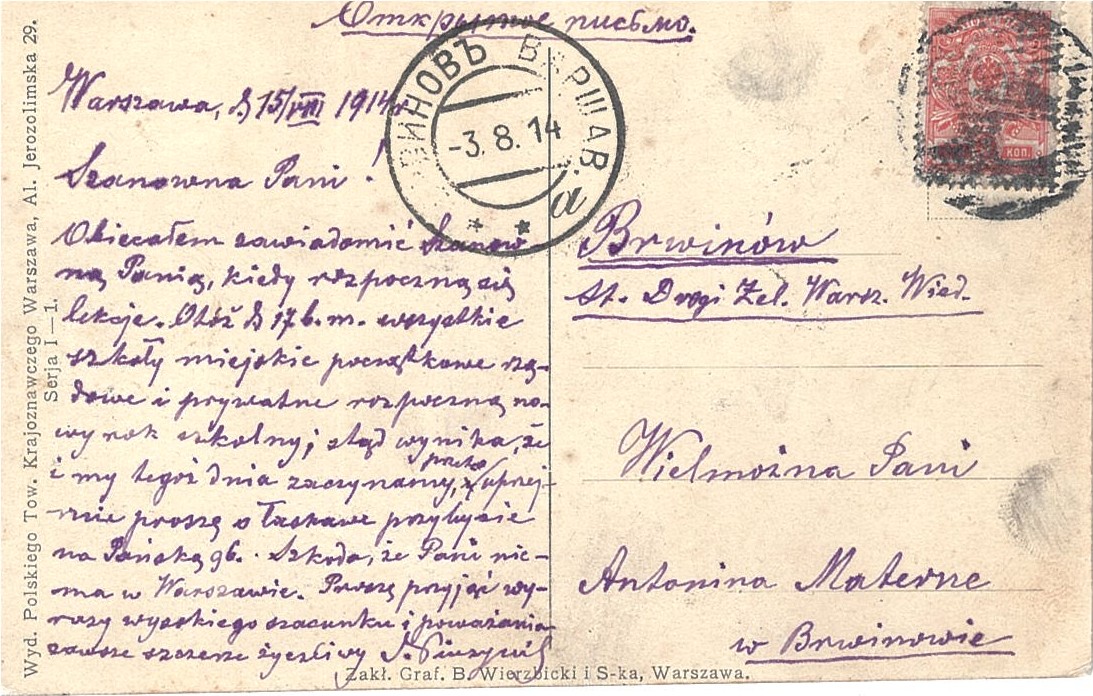 Открытое письмо.
Warszawa, d 15/VIII 1914 r
Szanowna Pani!
Obiecałem zawiadomić Szanow
ną Panią, kiedy rozpoczną się
lekcje. Otóż d 17 b. m. wszystkie
szkoły miejskie początkowe rzą-
dowe i prywatne rozpoczną no-
wy rok szkolny; stąd wynika, że
i my tegoż dnia zaczynamy, przeto uprzej-
mie proszę o łaskawe przybycie
na Pańską 96. Szkoda, że Pani nie-
ma w Warszawie. Proszę przyjąć wy-
razy wysokiego szacunku i poważania
zawsze szczerze życzliwy
ВИНОВЪ ВАРШАВ
-3.8.14
а
КОП.
Brwinów
St. Drogi Żel. Warsz. Wied.
Wielmożna Pani
Antonina Materne
w Brwinowie
Wyd. Polskiego Tow. Krajoznawczego Warszawa, Al. Jerozolimska 29.
Serja I—1.
Zakł. Graf. B. Wierzbicki i S-ka, Warszawa.